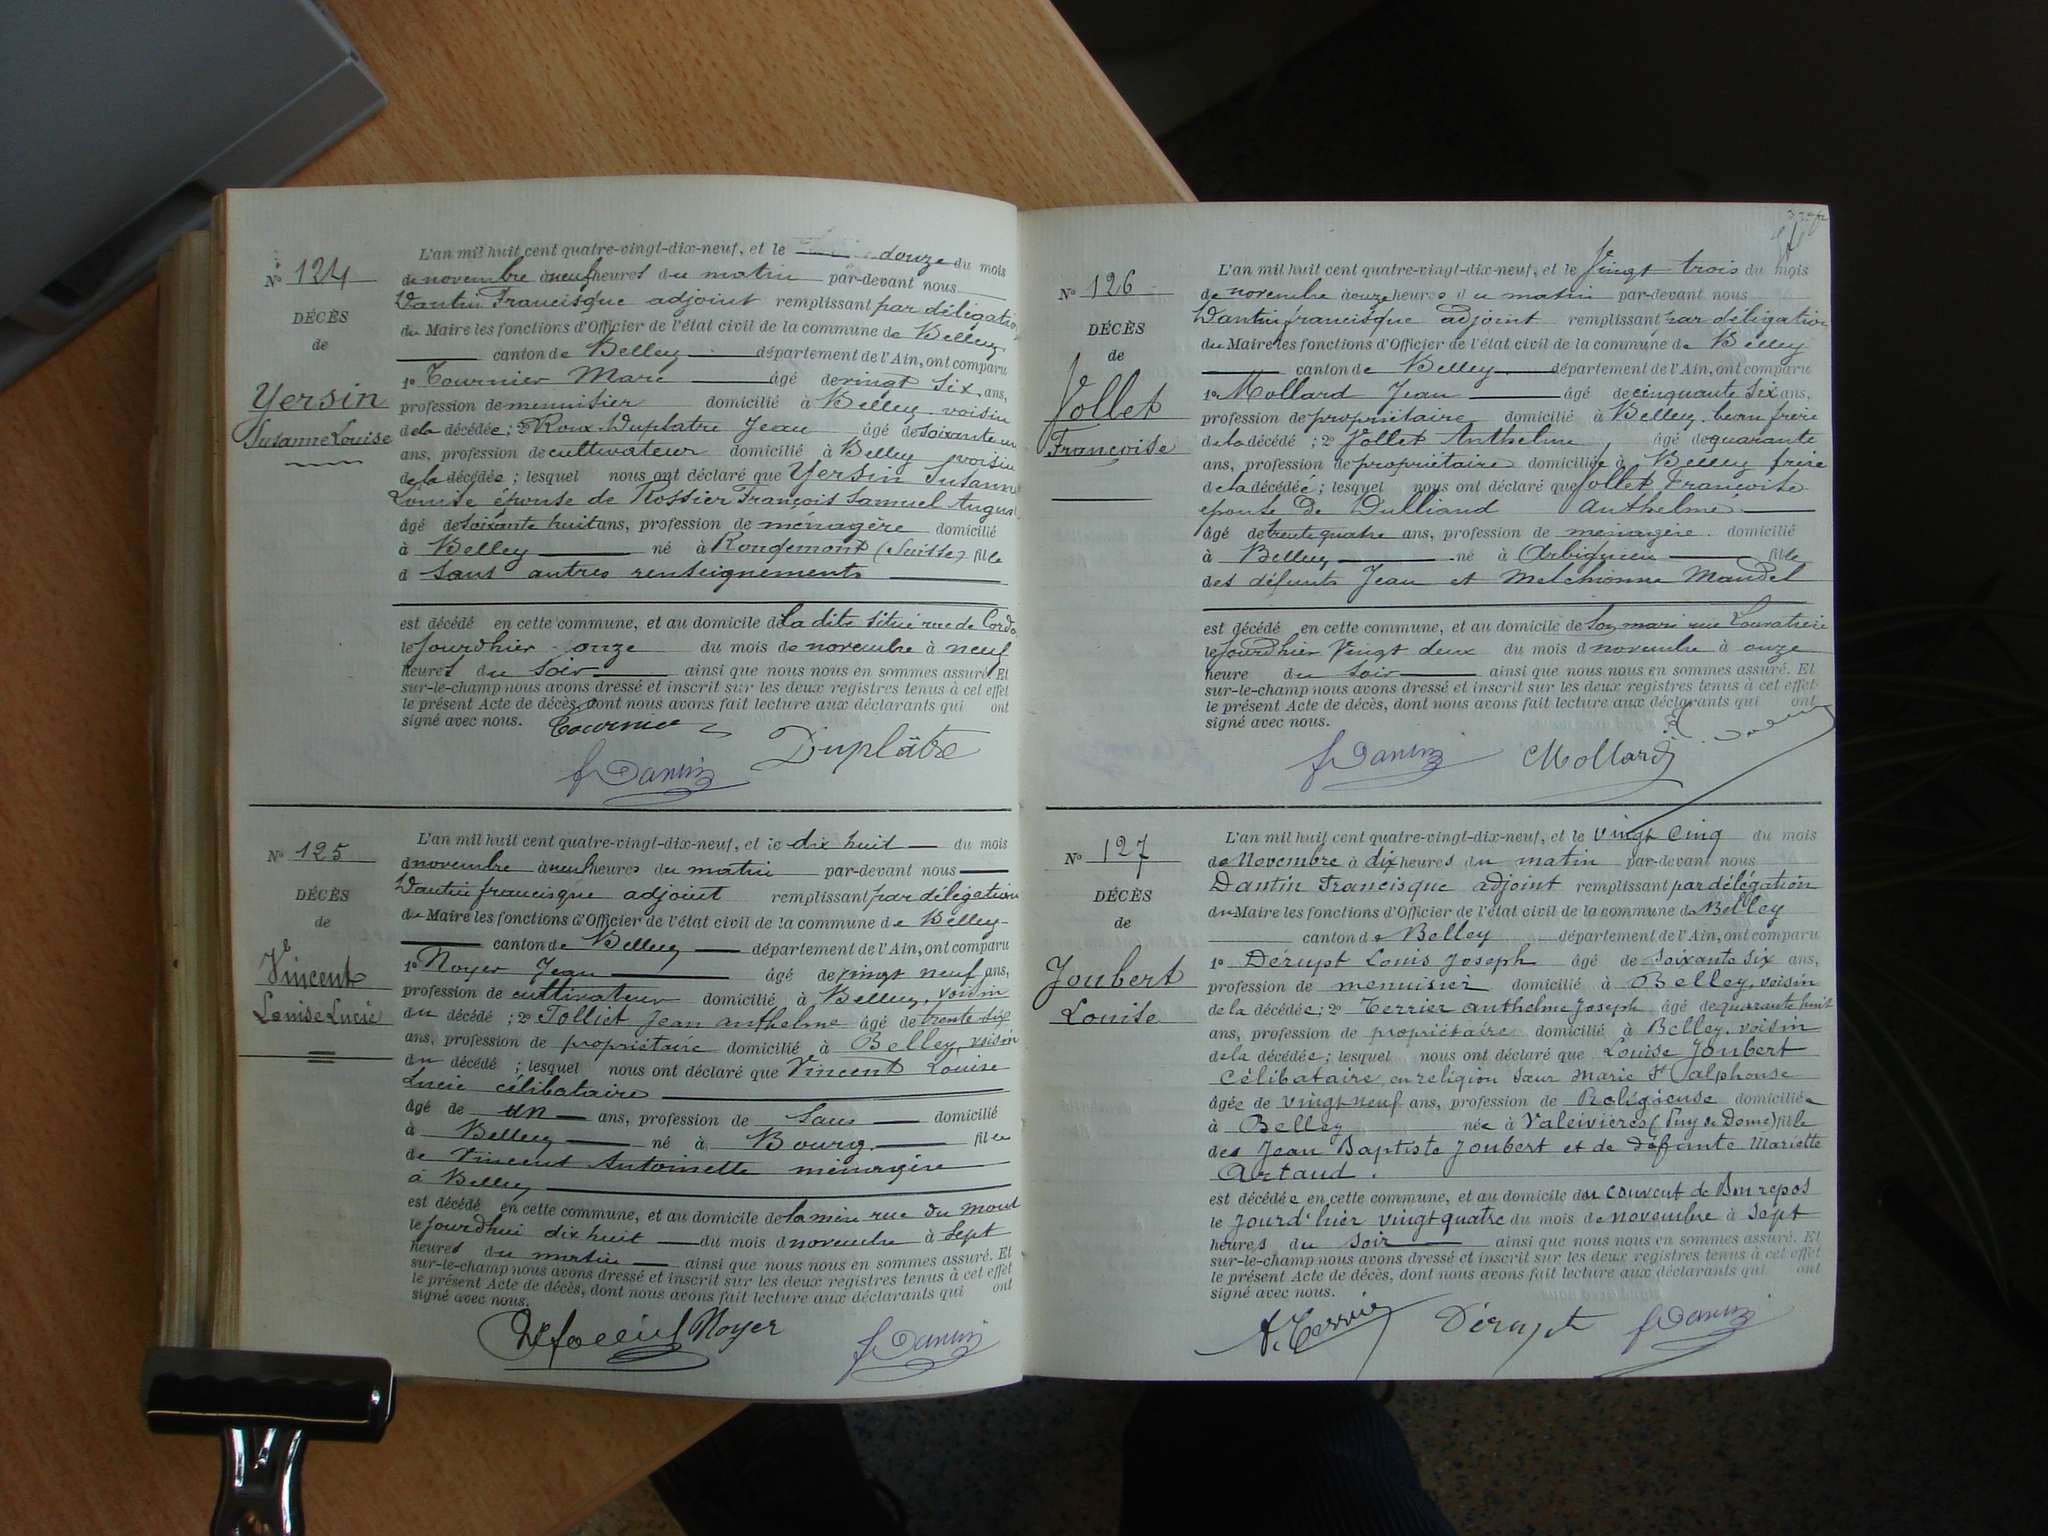 L'an mil huit cent quatre-vingt-dix-neuf, et le douze du mois
No 124
de novembre à neuf heures du matin par-devant nous
Dantin Francisque adjoint remplissant par délégation
DÉCÈS
du Maire les fonctions d'Officier de l'état civil de la commune de Belley
de
canton de Belley département de l'Ain, ont comparu
1o Tournier Marc âgé de vingt six ans,
Yersin
profession de menuisier domicilié à Belley voisin
Susanne Louise
de la décédée ; 2o Roux-Duplatre Jean âgé de soixante un
ans, profession de cultivateur domicilié à Belley voisin
de la décédée ; lesquel nous ont déclaré que Yersin Susanne
Louise épouse de Rossier François Samuel August
âgé de soixante huit ans, profession de ménagère domicilié
à Belley né à Rougemont (Suisse) fille
d sans autres renseignements
est décédé en cette commune, et au domicile de la dite situé rue de Cordo
le jourdhier onze du mois de novembre à neuf
heures du soir ainsi que nous nous en sommes assuré. Et
sur-le-champ nous avons dressé et inscrit sur les deux registres tenus à cet effet
le présent Acte de décès, dont nous avons fait lecture aux déclarants qui ont
signé avec nous. Tournier
Duplâtre
f Dantin
L'an mil huit cent quatre-vingt-dix-neuf, et le dix huit du mois
No 125
d novembre à neuf heures du matin par-devant nous
Dantin francisque adjoint remplissant par délégation
DÉCÈS
du Maire les fonctions d'Officier de l'état civil de la commune de Belley
de
canton de Belley département de l'Ain, ont comparu
Vincent
1o Noyer Jean âgé de vingt neuf ans,
profession de cultivateur domicilié à Belley, voisin
Louise Lucie
du décédé ; 2o Tolliet Jean anthelme âgé de trente six
ans, profession de propriétaire domicilié à Belley, voisin
du décédé ; lesquel nous ont déclaré que Vincent Louise
Lucie célibataire
âgé de un ans, profession de sans domicilié
à Belley né à Bourg fille
de Vincent Antoinette ménagère
à Belley
est décédé en cette commune, et au domicile de la mère rue du
le jourdhui dix huit du mois d novembre à sept
heures du matin ainsi que nous nous en sommes assuré. Et
sur-le-champ nous avons dressé et inscrit sur les deux registres tenus à cet effet
le présent Acte de décès, dont nous avons fait lecture aux déclarants qui ont
signé avec nous.
Noyer
f Dantin
L'an mil huit cent quatre-vingt-dix-neuf, et le Vingt trois du mois
No 126
de novembre à onze heures du matin par-devant nous
Dantin francisque adjoint remplissant par délégation
DÉCÈS
du Maire les fonctions d'Officier de l'état civil de la commune de Belley
de
canton de Belley département de l'Ain, ont comparu
Vollet
1o Mollard Jean âgé de cinquante six ans,
profession de propriétaire domicilié à Belley, beau frère
Françoise
de la décédé ; 2o Vollet Anthelme âgé de quarante
ans, profession de propriétaire domicilié à Belley frère
de la décédée ; lesquel nous ont déclaré que Vollet Francoise
epouse de Dulliand Anthelme
âgé de trente quatre ans, profession de ménagère domicilié
à Belley né à Arbignieu fille
des défunts Jean et Melchionne Maudet
est décédé en cette commune, et au domicile de son mari rue
le jourdhier Vingt deux du mois d novembre à onze
heure du soir ainsi que nous nous en sommes assuré. Et
sur-le-champ nous avons dressé et inscrit sur les deux registres tenus à cet effet
le présent Acte de décès, dont nous avons fait lecture aux déclarants qui ont
signé avec nous.
f Dantin Mollard
L'an mil huit cent quatre-vingt-dix-neuf, et le vingt cinq du mois
No 127
de Novembre à dix heures du matin par-devant nous
Dantin Francisque adjoint remplissant par délégation
DÉCÈS
du Maire les fonctions d'Officier de l'état civil de la commune de Belley
de
canton de Belley département de l'Ain, ont comparu
Joubert
1o Dérupt Louis Joseph âgé de soixante six ans,
profession de menuisier domicilié à Belley, voisin
Louise
de la décédée ; 2o Terrier anthelme Joseph âgé de quarante huit
ans, profession de propriétaire domicilié à Belley, voisin
de la décédée ; lesquel nous ont déclaré que Louise Joubert
Célibataire, en religion sœur Marie St alphonse
âgée de vingt neuf ans, profession de Religieuse domiciliée
à Belley née à Valcivières (Puy de Dome) fille
des Jean Baptiste Joubert et de défunte Mariette
Artaud.
est décédée en cette commune, et au domicile du couvent de Bon repos
le jourd'hier vingt quatre du mois de novembre à sept
heures du soir ainsi que nous nous en sommes assuré. Et
sur-le-champ nous avons dressé et inscrit sur les deux registres tenus à cet effet
le présent Acte de décès, dont nous avons fait lecture aux déclarants qui ont
signé avec nous.
A. Terrier Dérupt f Dantin